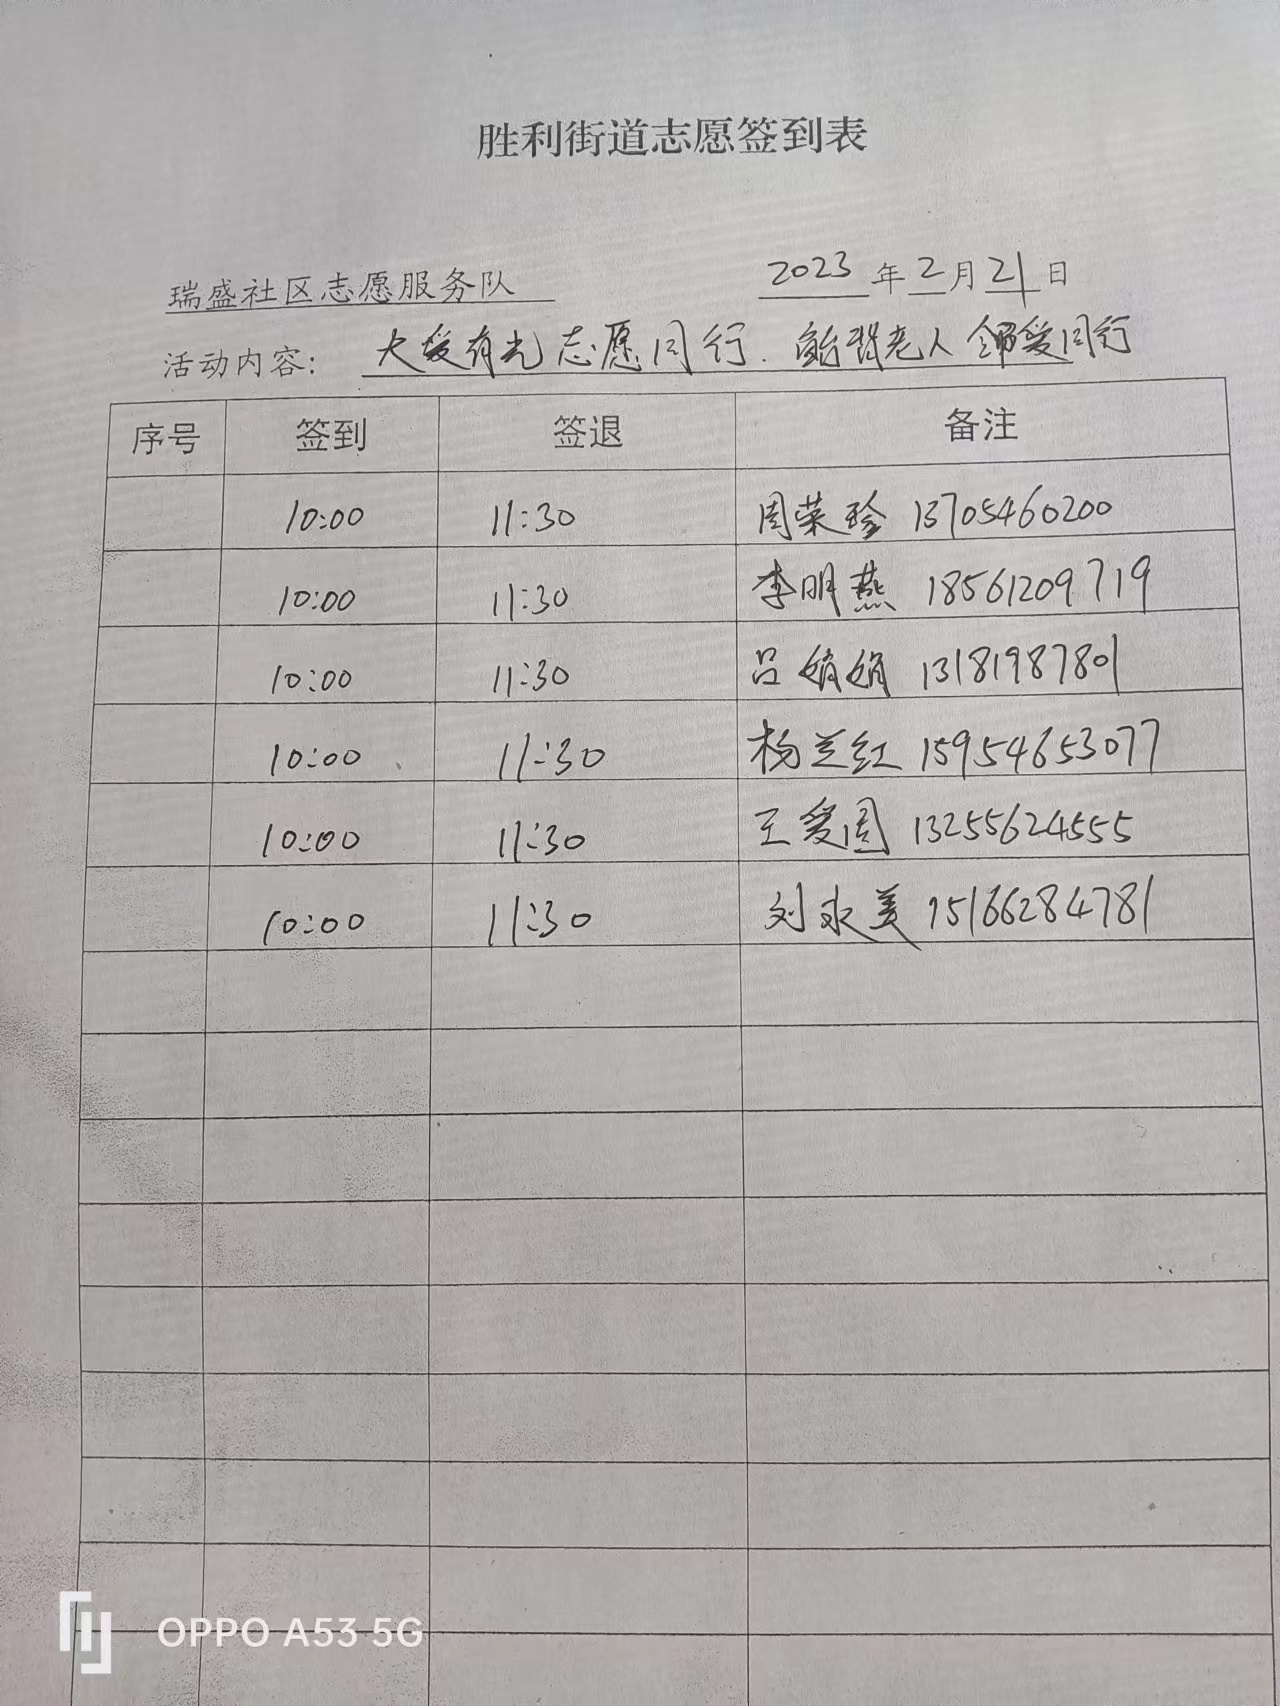 胜利街道志愿签到表
瑞盛社区志愿服务队 2023年2月21日
活动内容: 大爱有光志愿同行. 老人 爱同行
序号 签到 签退 备注
10:00 11:30 周荣珍 13705460200
10:00 11:30 李明燕 18561209719
10:00 11:30 吕娟娟 13181987801
10:00 11:30 杨兰红 15954653077
10:00 11:30 王爱国 13255624555
10:00 11:30 刘永美 15166284781
OPPO A53 5G